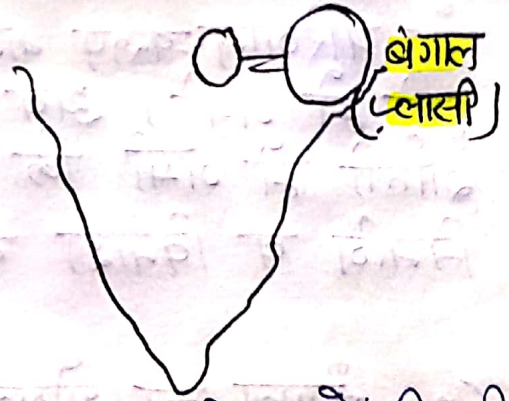 बंगाल
(प्लासी)